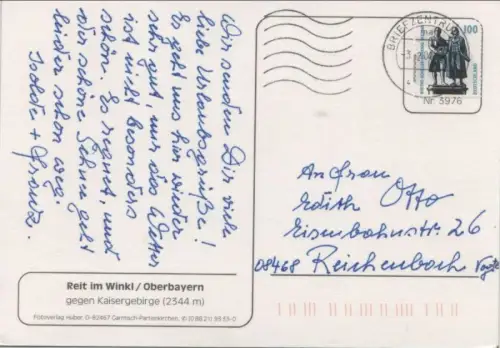 Wir senden Dir viele
liebe Urlaubsgrüße!
Es geht uns hier wieder
sehr gut, nur das Wetter
ist nicht besonders
schön. Es regnet, und
der schöne Schnee geht
leider schon weg.
Isolde + Franz
Reit im Winkl / Oberbayern
gegen Kaisergebirge (2344 m)
Fotoverlag Huber D-82467 Garmisch-Partenkirchen
BRIEFZENTRUM
100
DEUTSCHLAND
Nr 3976
An Frau
Edith Otto
Eisenbahnstr. 26
08468 Reichenbach Vogtl.